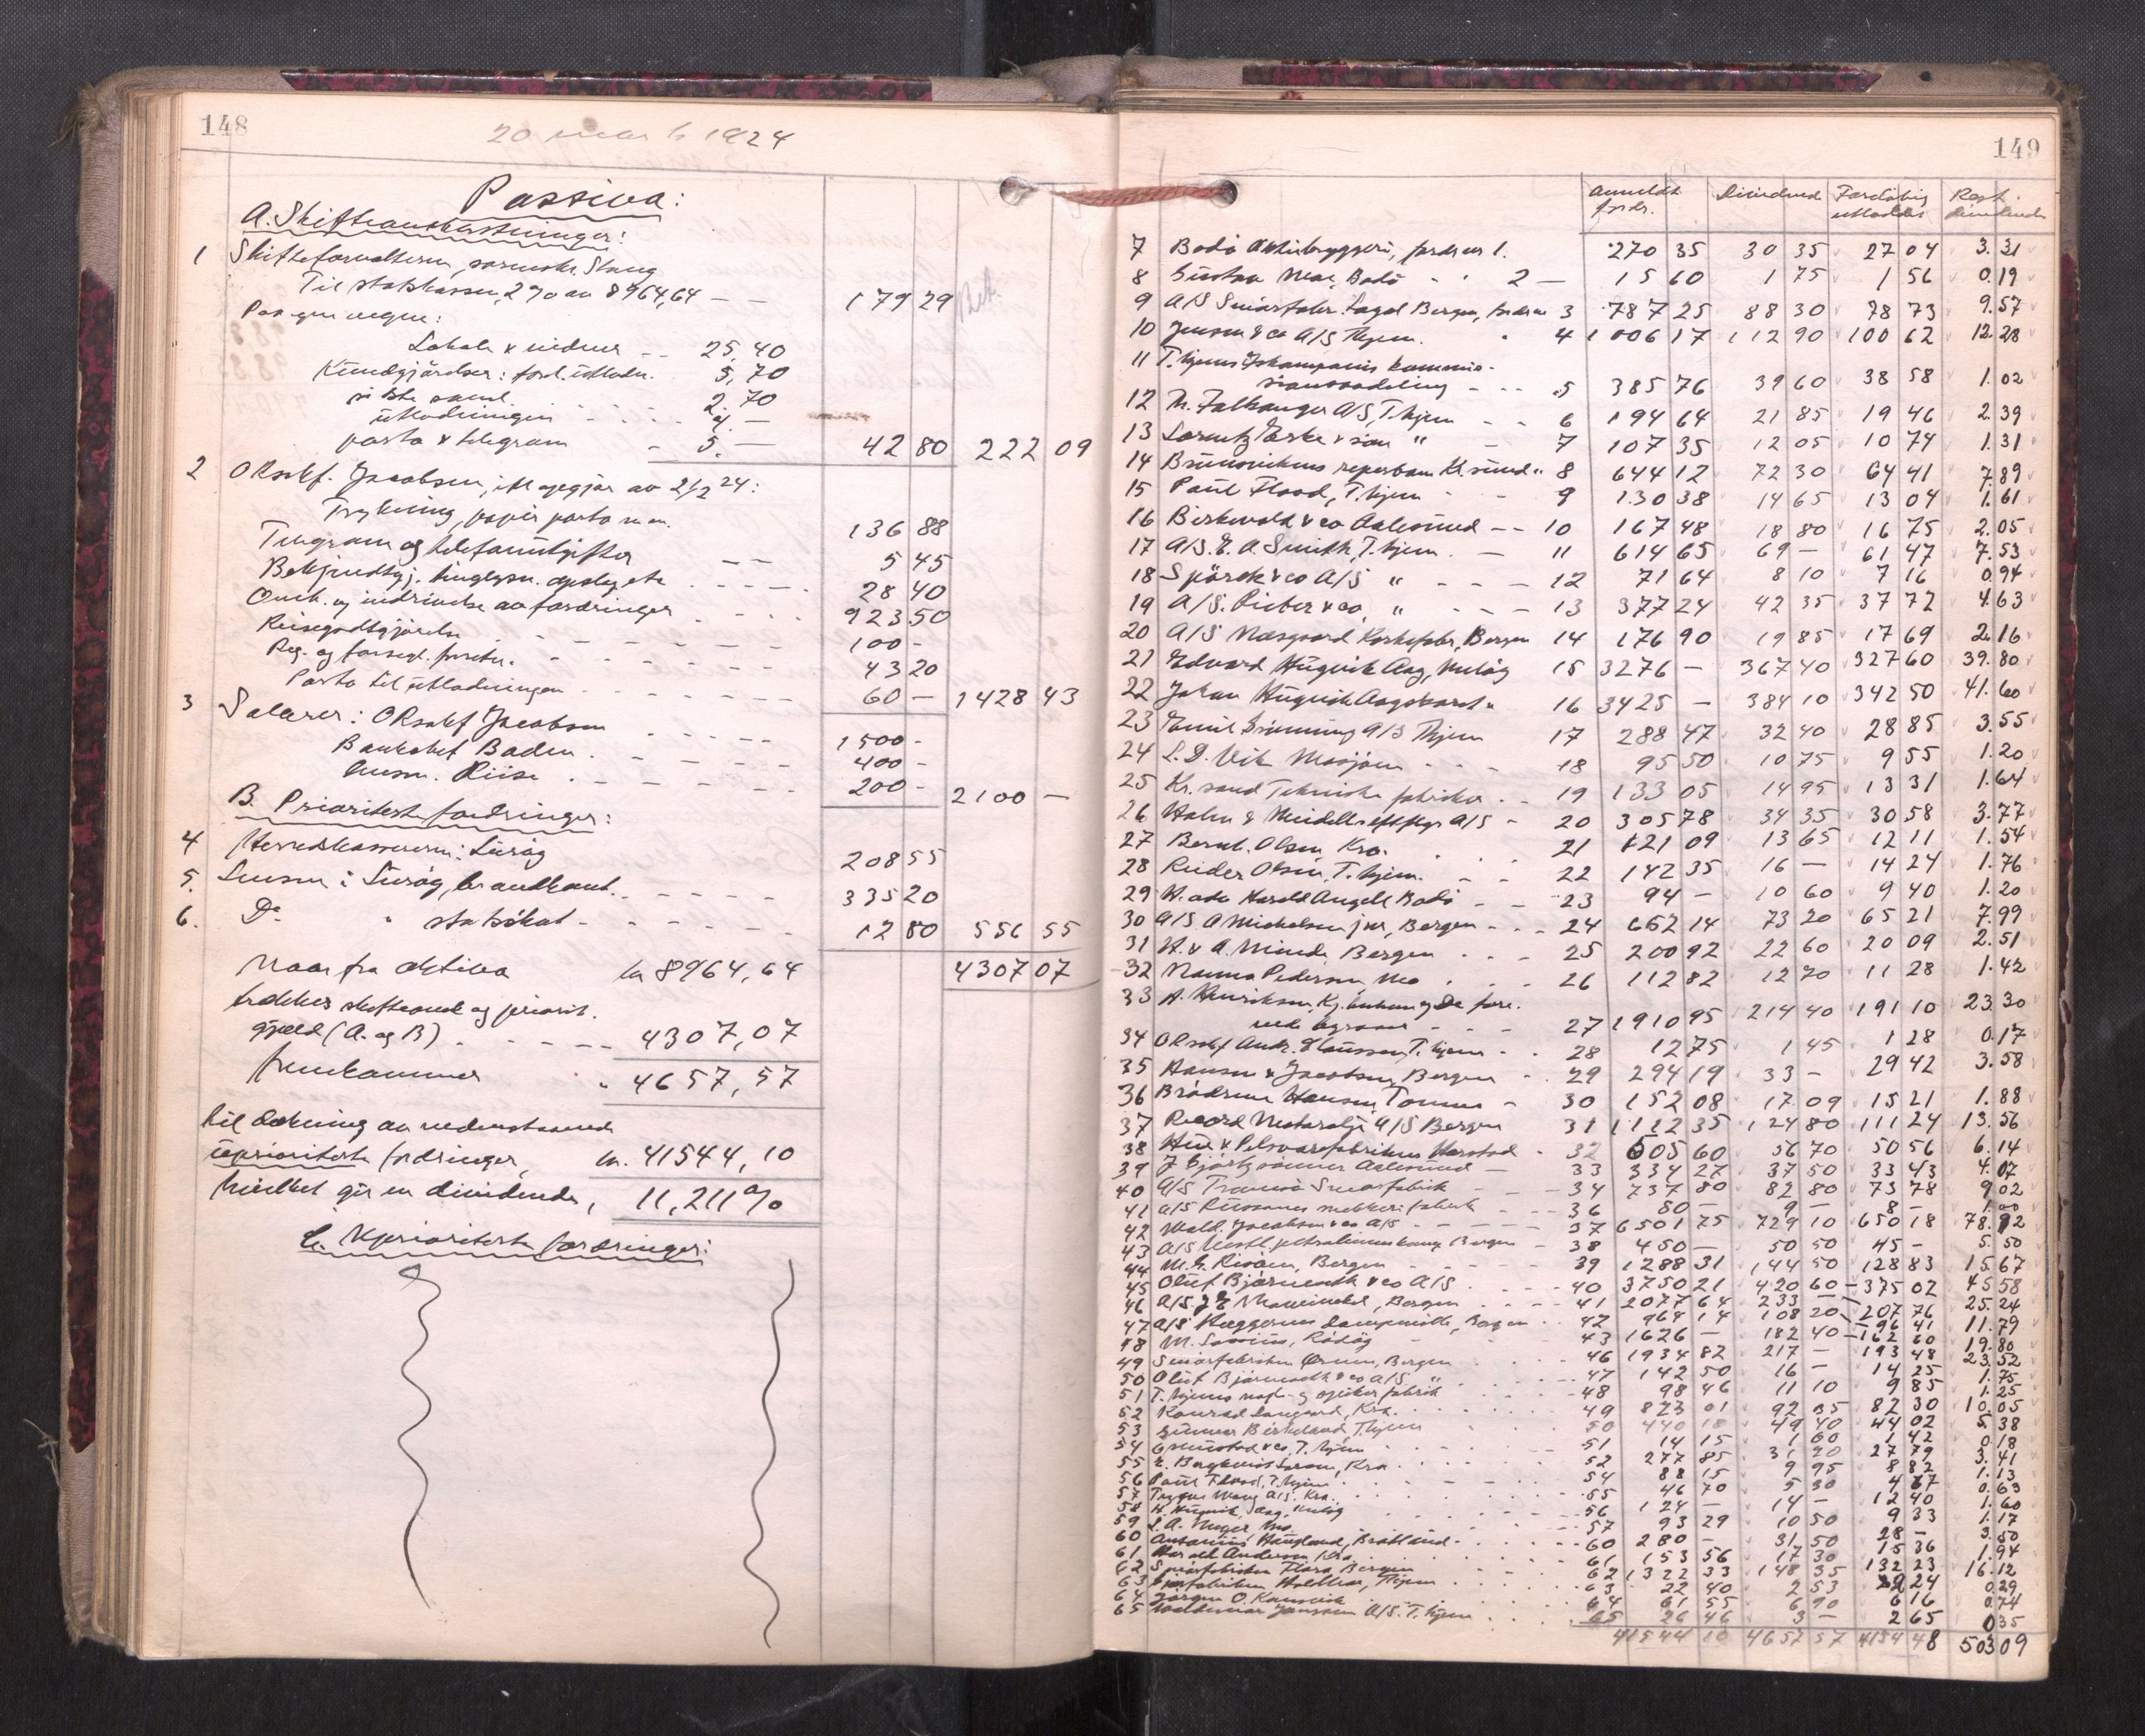 148
20 mars 1924
Passiva:
A. Skifteomkostninger:
1 Skifteforvalteren, sorenskr. Stang
Til statskassen, 2 % av 8964,64 — — 179 29
Paa egne vegne:
Lokale & vidner — 25,40
Kundgjørelser: forl. utlodn. 5,70
siste saml. 2,70
utlodningen 4 —
porto & telegram — 5. — 42 80 222 09
2 ORsakf. Jacobsen, iflg. opgjør av 21/2 24:
Trykning, papir porto m.m. 136 88
Telegram og telefonutgifter — — 5 45
Bekjendtgj. tinglysn. opslag etc 28 40
Omk. og inddrivelse av fordringer 923 50
Reisegodtgjørelse 100 -
Reg. og forsegl. forretn. 43 20
Porto til utlodningen 60 — 1428 43
3 Salærer: ORsakf Jacobsen 1500 -
Bankchef Baden 400 -
Lensm. Riise 200 - 2100 —
B. Prioriterte fordringer:
4 Herredskassereren: Lurøy 208 55
5. Lensm i Lurøy, brandkont. 335 20
6. Do " statsskat 12 80 556 55
Naar fra aktiva kr 8964,64 4307 07
trækkes skifteomk og priorit.
gjæld (A. og B) 4307,07
fremkommer " 4657,57
til dækning av nedenstaaende
uprioriterte fordringer, kr. 41544,10
hvilket gir en dividende, 11,211 %
C. Uprioriterte fordringer:
149
Anmeldt fordr. Dividend Foreløbig utloddet Rest. dividende
7 Bodø Aktiebryggeri, fordr nr 1. 270 35 30 35 27 04 3.31
8 Gustav Moe, Bodø " 2 — 15 60 1 75 1 56 0.19
9 A/S Smørfabr. Fagel Bergen, fordr nr 3 787 25 88 30 78 73 9.57
10 Jenssen & co A/S Thjem. " 4 1006 17 112 90 100 62 12.28
11 T.hjems Iskompanis kommis-
sionsavdeling 5 385 76 39 60 38 58 1.02
12 N. Falkanger A/S, T.hjem 6 194 64 21 85 19 46 2.39
13 Lorentz Erbe & søn " 7 107 35 12 05 10 74 1.31
14 Brunsvikens reperbane Kr.sund " 8 644 12 72 30 64 41 7.89
15 Paul Flood, T.hjem 9 130 38 14 65 13 04 1.61
16 Birkevold & co Aalesund — 10 167 48 18 80 16 75 2.05
17 A/S. E. A. Smith, T.hjem — 11 614 65 69 — 61 47 7.53
18 Spörck & co A/S " 12 71 64 8 10 7 16 0.94
19 A/S. Lieber & co, " 13 377 24 42 35 37 72 4.63
20 A/S Næsgaard Korkefabr, Bergen 14 176 90 19 85 17 69 2.16
21 Edvard Hugvik Aag, Meløy 15 3276 — 367 40 327 60 39.80
22 Johan Hugvik Aagskaret " 16 3425 — 384 10 342 50 41.60
23 Emil Grønning A/S Thjem 17 288 47 32 40 28 85 3.55
24 L. D. Vik Mosjøen 18 95 50 10 75 9 55 1.20
25 Kr.sand Tekniske fabrikker 19 133 05 14 95 13 31 1.64
26 Holm & Heidells eftflgr A/S 20 305 78 34 35 30 58 3.77
27 Bernh. Olsen Kra. 21 121 09 13 65 12 11 1.54
28 Reider Olsen, T.hjem. 22 142 35 16 — 14 24 1.76
29 H. adv Harald Angell Bodø 23 94 — 10 60 9 40 1.20
30 A/S A. Michelsen jnr, Bergen 24 652 14 73 20 65 21 7.99
31 H. & A. Minde Bergen 25 200 92 22 60 20 09 2.51
32 Nanna Pedersen, Mo 26 112 82 12 70 11 28 1.42
33 A. Henriksen, Kj.havn og De fore.
27 1910 95 214 40 191 10 23.30
34 ORsakf Andr. Claussen, T.hjem 28 12 75 1 45 1 28 0.17
35 Hansen & Jacobsen Bergen 29 294 19 33 — 29 42 3.58
36 Brødrene Hansen, Tromsø 30 152 08 17 09 15 21 1.88
37 Record Motorolje A/S Bergen 31 1112 35 124 80 111 24 13.56
38 Hue & Pelsvarefabrikken Harstad 32 505 60 56 70 50 56 6.14
39 J. Gjørtz sønner Aalesund — 33 334 27 37 50 33 43 4.07
40 A/S Tromsø Smørfabrik 34 737 80 82 80 73 78 9 02
41 A/S Russenes melkerifabrik 36 80 — 9 — 8 — 1.00
42 Wald. Jacobsen & co A/S 37 6501 75 729 10 650 18 78.92
43 A/S Vestl. petroleumskomp Bergen 38 450 — 50 50 45 — 5.50
44 M. G. Rivoen, Bergen 39 1288 31 144 50 128 83 15 67
45 Oluf Bjørneseth & co A/S 40 3750 21 420 60 375 02 45 58
46 A/S. J. E. Mowinckel, Bergen 41 2077 64 233 — 207 76 25.24
47 A/S Vaggernes Dampmølle, Bergen 42 964 14 108 20 96 41 11.79
48 M. Larsens, Rødøy 43 1626 — 182 40 162 60 19.80
49 Smørfabriken Ørnen, Bergen 46 1934 82 217 — 193 48 23.52
50 Oluf Bjørneseth & co A/S " 47 142 50 16 — 14 25 1.75
51 T.hjems fabrik 48 98 46 11 10 9 85 1.25
52 Konrad Langaard, Kra. 49 823 01 92 35 82 30 10.05
53 Gunnar Birkeland, T.hjem 50 440 18 49 40 44 02 5.38
54 Grønstad & co, T.hjem 51 14 15 1 60 1 42 0.18
55 E. Bergkvist Larsen, Kra 52 277 85 31 20 27 79 3.41
56 Paul Flood, T.hjem 54 88 15 9 95 8 82 1.13
57 Trygve Wang A/S. Kra. 55 46 70 5 30 4 67 0.63
58 H. Hugvik, Aag, Meløy 56 124 — 14 — 12 40 1.60
59 L. A. Meyer Mo 57 93 29 10 50 9 33 1.17
60 Antonius Haugland, Bratland 60 280 — 31 50 28 — 3.50
61 Harald Andersen Kra 61 153 56 17 30 15 36 1.94
62 Smørfabriken Flora Bergen 62 1322 33 148 35 132 23 16.12
63 Holtbar, Thjem 63 22 40 2 53 2 24 0.29
64 Jørgen O. 64 61 55 6 90 6 16 0.74
65 Waldemar Janssen A/S. T.hjem 65 26 46 3 — 2 65 0 35
41544 10 4657 57 4154 48 503 09